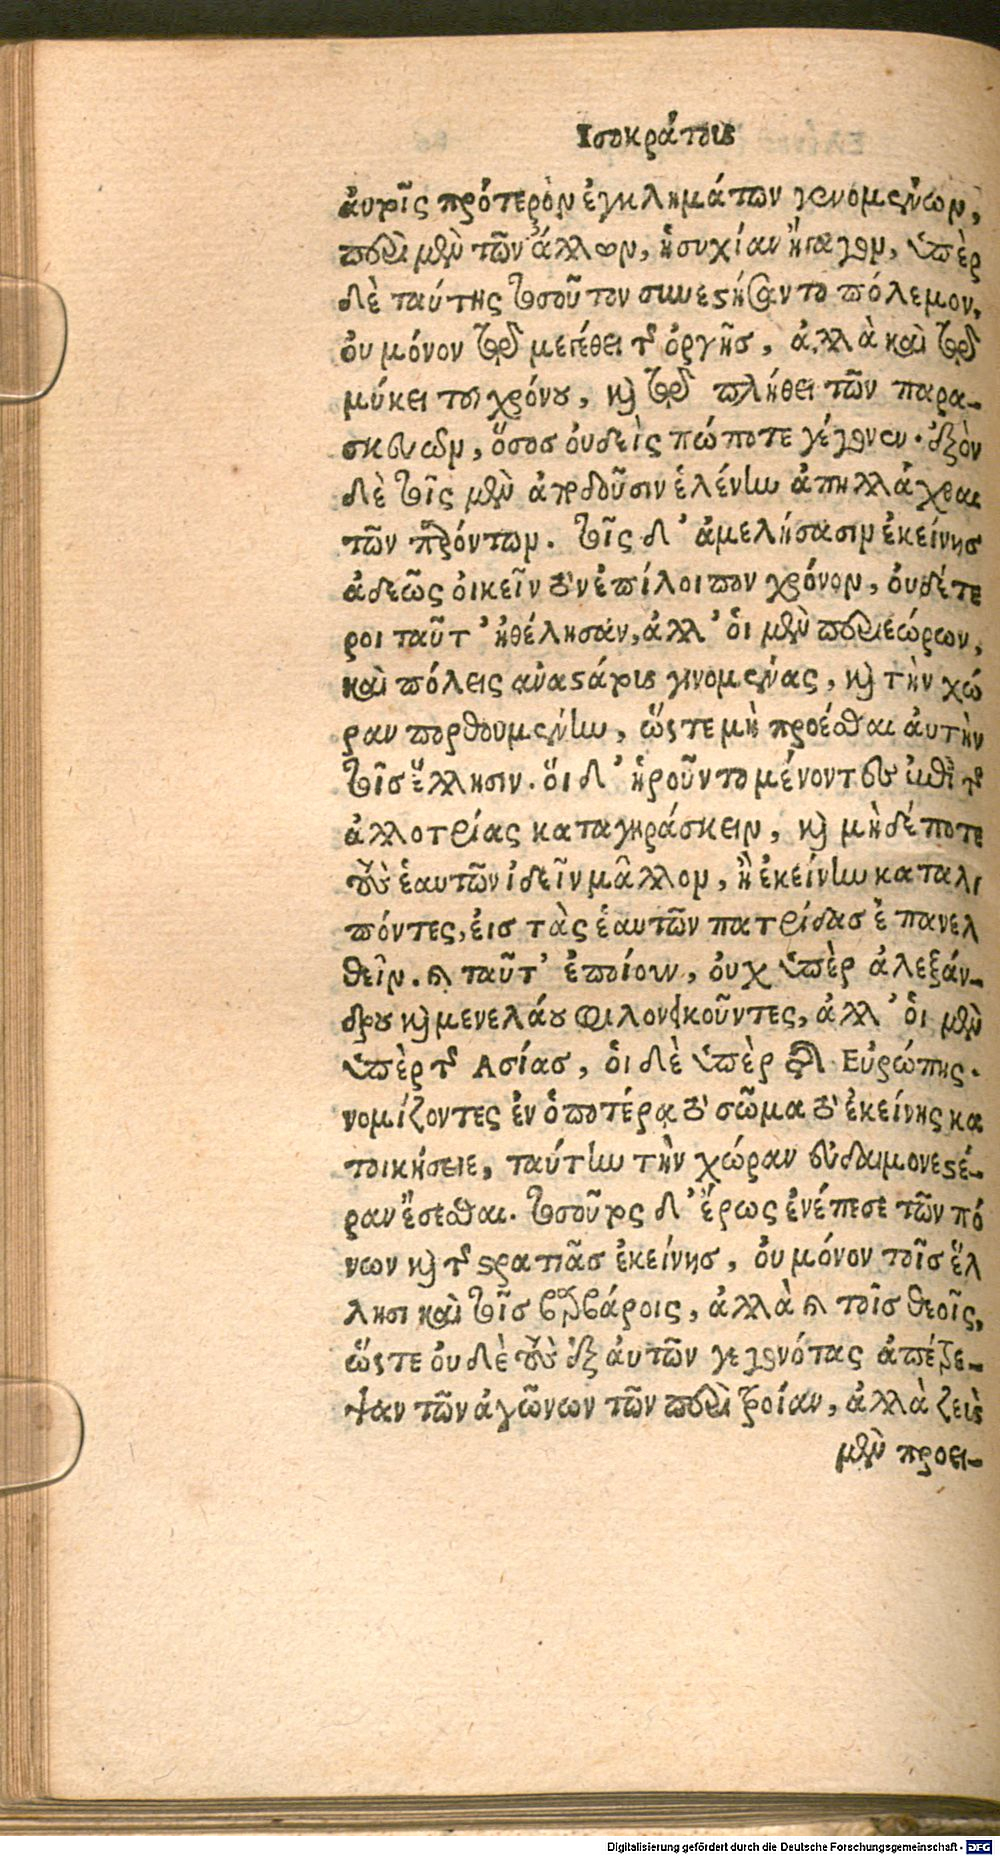 Ισοκράτους
ἀυτοῖς πρότερον ἐγκλημάτων γενομένων,
περὶ μὲν τῶν ἄλλων, ἡσυχίαν ἤγαγον, ὑπὲρ
δὲ ταύτης τοσοῦτον συνεστήσαντο πόλεμον,
ὀυ μόνον τῷ μεγέθει τῆς ὀργῆς, ἀλλὰ καὶ τῷ
μύκει του χρόνου, καὶ τῷ πλήθει τῶν παρα-
σκευων, ὅσος ὀυδεὶς πώποτε γέγονεν. ἐξὸν
δὲ τοῖς μὲν ἀποδοῦσιν ἑλένην ἀπηλλάχθαι
τῶν παρόντων. τοῖς δ' ἀμελήσασιν ἐκείνης
ἀδεῶς ὀικεῖν τὸν ἐπίλοιπον χρόνον, ὀυδέτε
ροι ταῦτ' ἠθέλησαν, ἀλλ' ὁι μὲν περιεώρων,
καὶ πόλεις ἀναστάτους γινομένας, καὶ τὴν χώ
ραν πορθουμένην, ὥςτε μὴ προέσθαι ἀυτὴν
τοῖς ἕλλησιν. ὅι δ' ἡροῦντο μένοντες ἐπὶ τῆς
ἀλλοτρίας καταγηράσκειν, καὶ μηδέποτε
τοὺς ἑαυτῶν ἰδεῖν μᾶλλον, ἢ ἐκείνην καταλι
πόντες, ἐις τὰς ἑαυτῶν πατρίδας ἐπανελ
θεῖν. καὶ ταῦτ' ἐποίουν, ὀυχ ὑπὲρ ἀλεξάν-
δρου καὶ μενελάου φιλονεικοῦντες, ἀλλ' ὁι μὲν
ὑπὲρ τῆς Ασίας, ὁι δὲ ὑπὲρ τῆς Εὐρώπης.
νομίζοντες ἐν ὁποτέρᾳ τὸ σῶμα τὸ ἐκείνης κα
τοικήσειε, ταύτην τὴν χώραν ἐυδαιμονεστέ-
ραν ἔσεσθαι. τοσοῦτος δ' ἔρως ἐνέπεσε τῶν πό
νων καὶ τῆς στρατιᾶς ἐκείνης, ὀυ μόνον τοῖς ἕλ
λησι καὶ τοῖς βαρβάροις, ἀλλὰ καὶ τοῖς θεοῖς,
ὥςτε ὀυδὲ τοὺς ἐξ ἀυτῶν γεγονότας ἀπέτρε-
ψαν τῶν ἀγώνων τῶν περὶ τροίαν, ἀλλὰ ζεὺς
μὲν προει-
Digitalisierung gefördert durch die Deutsche Forschungsgemeinschaft - DFG